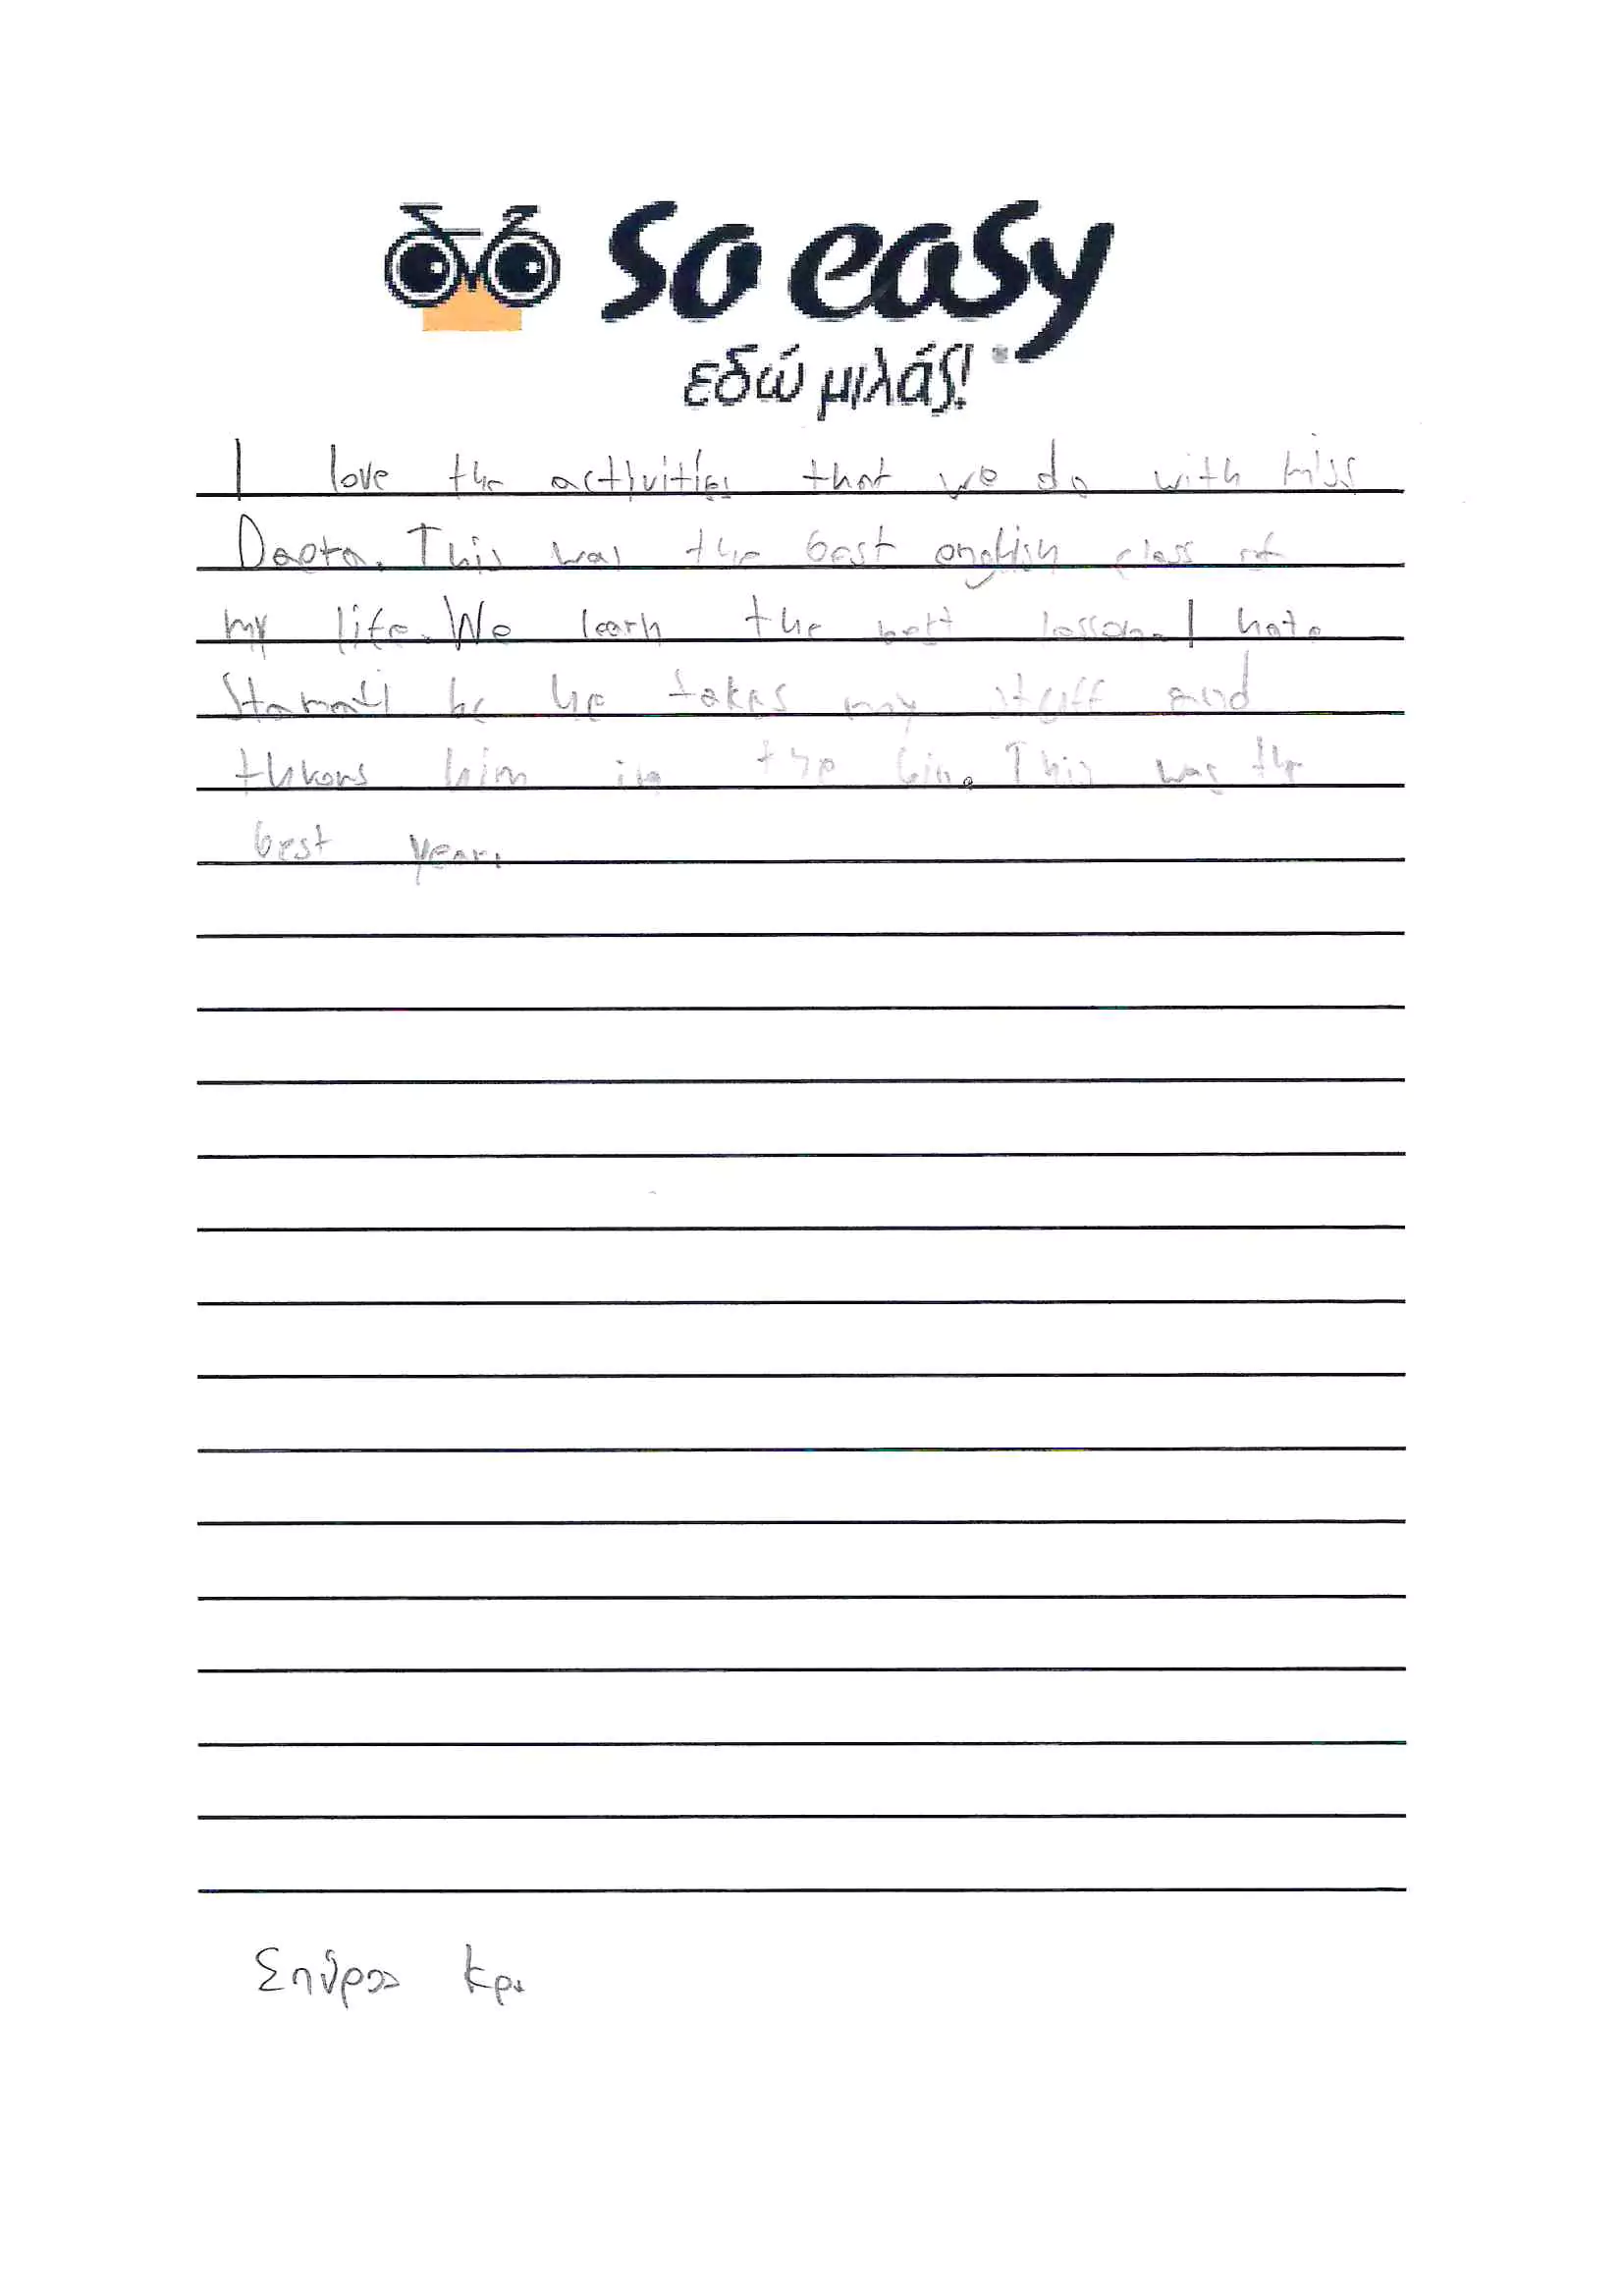 so easy
εδώ μιλάς!
I love the activities that we do with miss
Daeta. This was the best english class of
my life. We learn the best lesson. I hate
Stamati he takes my stuff and
him in the bin. This was the
best year.
Σπύρος Κρ